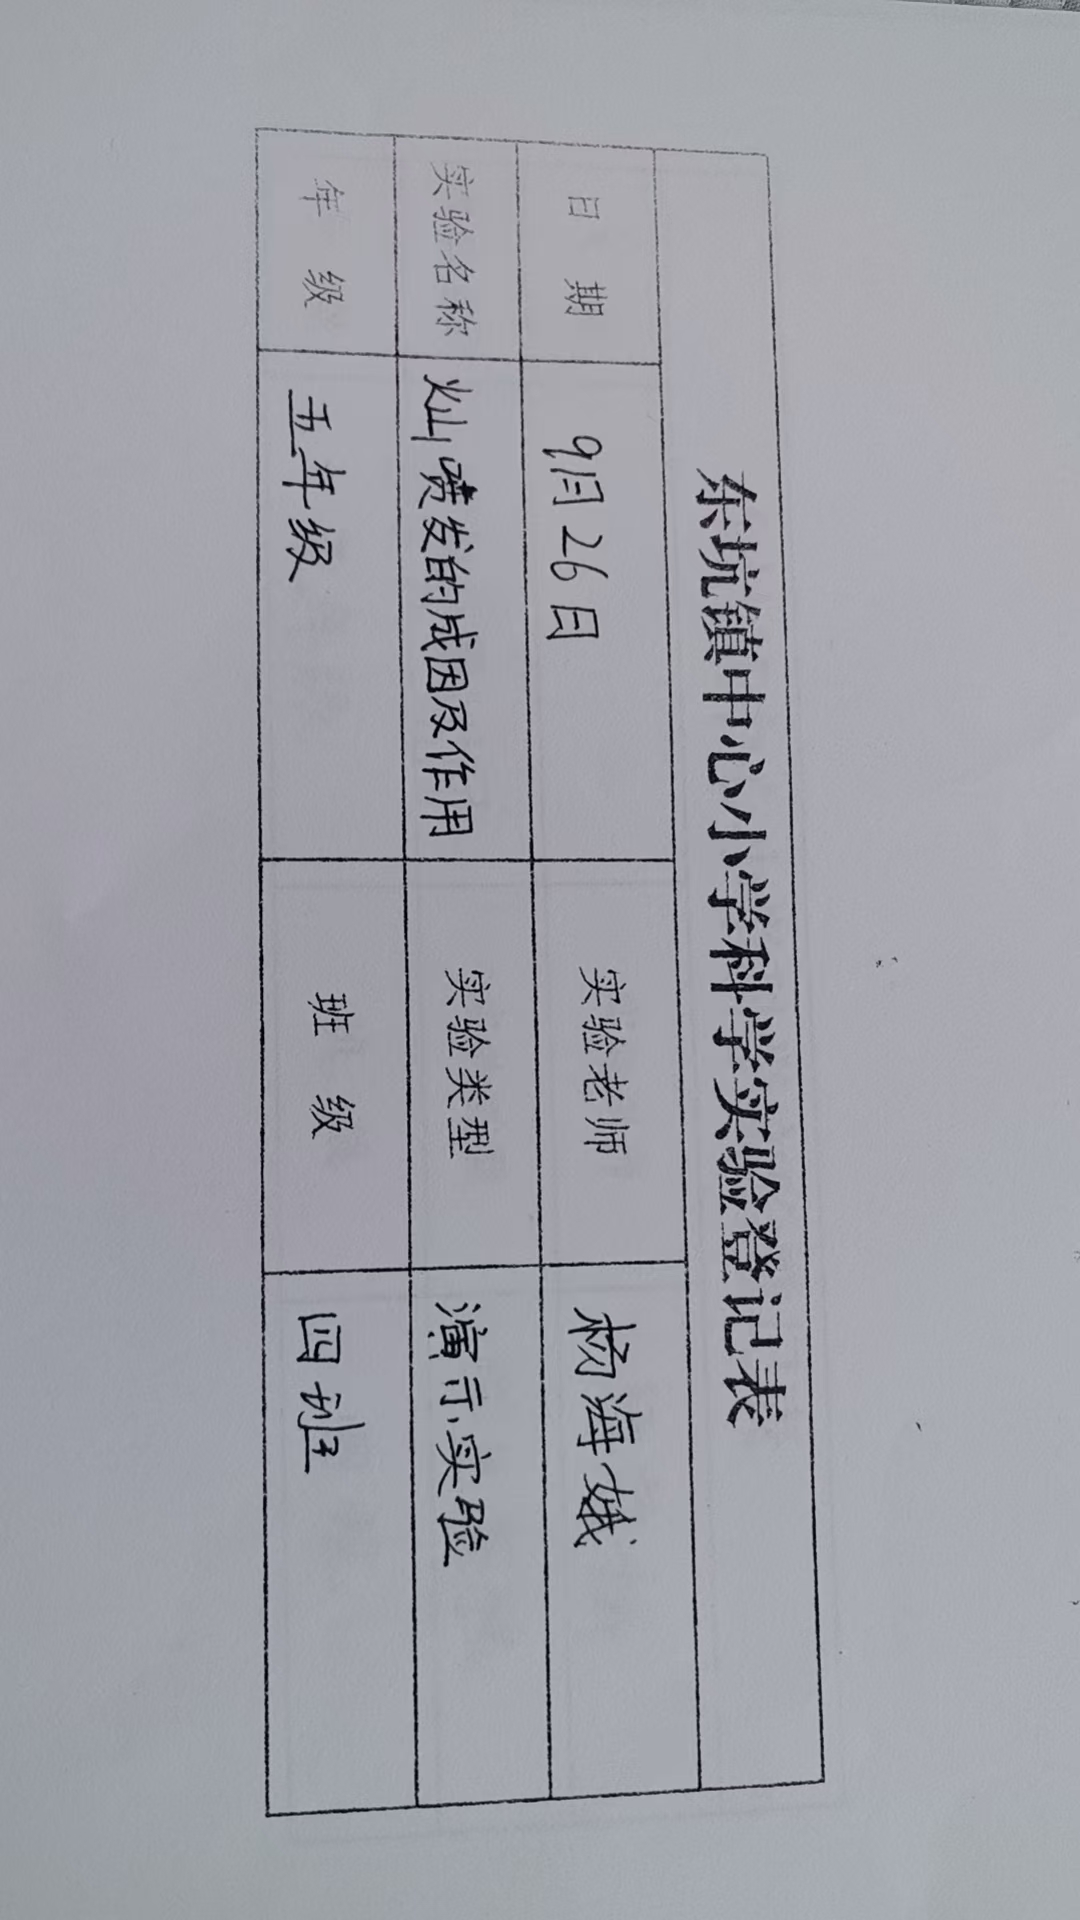 东坑镇中心小学科学实验登记表
日 期 9月26日 实验老师 杨海娥
实验名称 火山喷发的成因及作用 实验类型 演示实验
年 级 五年级 班 级 四班